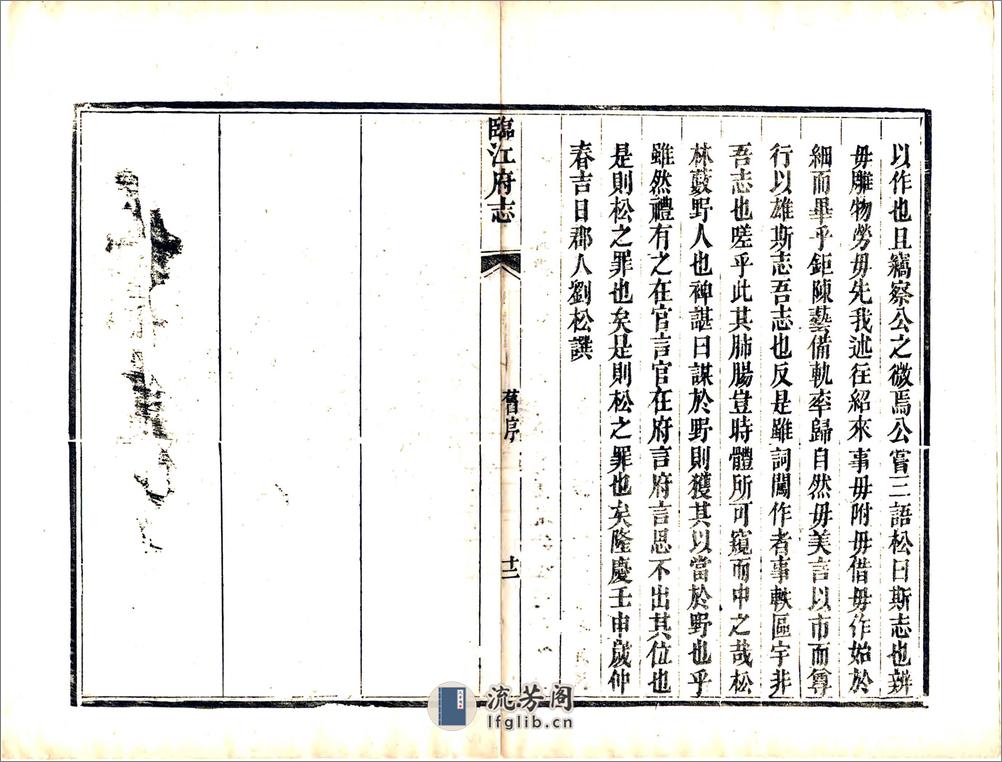 以作也且竊察公之微焉公嘗三語松曰斯志也辨
毋雕物勞毋先我述往紹來事毋附毋借毋作始於
細而畢乎鉅陳藝備軌率歸自然毋美言以市而尊
行以雄斯志吾志也反是雖詞闖作者事軼區宇非
吾志也嗟乎此其肺腸豈時體所可窺而中之哉松
林藪野人也裨諶曰謀於野則獲其以當於野也乎
雖然禮有之在官言官在府言府思不出其位也
是則松之罪也矣是則松之罪也矣隆慶壬申歲仲
春吉日郡人劉松譔
臨江府志
舊序
十二
流芳阁
lfglib.cn